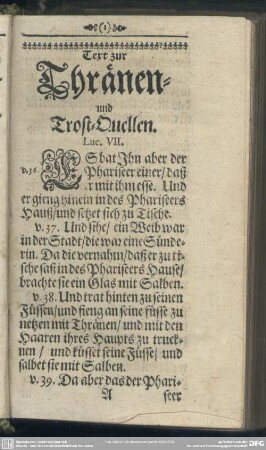 (1)
Text zur
Thränen-
und
Trost-Quellen.
Luc. VII.
v. 36. ES bat Jhn aber der
Phariseer einer/ daß
er mit ihm esse. Und
er gieng hinein in des Pharisers
Hauß/ und setzet sich zu Tische.
v. 37. Und sihe/ ein Weib war
in der Stadt/ die war eine Sünde-
rin. Da die vernahm/ daß er zu ti-
sche saß in des Phariseers Hause/
brachte sie ein Glas mit Salben.
v. 38. Und trat hinten zu seinen
Füssen/ und fieng an seine füsse zu
netzen mit Thränen/ und mit den
Haaren ihres Haupts zu truck-
nen/ und küsset seine Füsse/ und
salbet sie mit Salben.
v. 39. Da aber das der Phari-
A seer